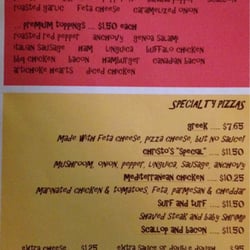 roasted garlic Feta cheese caramelized onion
... premium toppings ... $1.50 each
roasted red pepper anchovy genoa salami
italian sausage Ham linguica buffalo chicken
bbq chicken bacon Hamburger canadian bacon
artichoke Hearts diced chicken
SPECIALTY PIZZAS
greek ..... $7.65
Made With Feta cheese, pizza cheese, but no Sauce!
christo's "special" .... $11.50
Mushroom, onion, pepper, linguica, sausage, anchovy
Mediterranean chicken .... $10.25
Marinated chicken & tomatoes, Feta, parmesan & cheddar
surf and turf .... $11.50
Shaved steak and baby Shrimp
Scallop and bacon .... $11.50
extra cheese $1.25 extra sauce or double dough .95